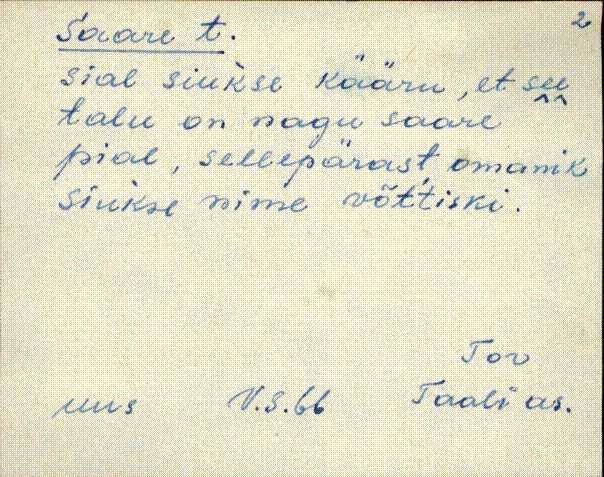 Saare t. 2
sial siukse kääru, et see
talu on nagu saare
pial, sellepärast omanik
siukse nime võttiski.
Tor
uus V.S.66 Taali as.